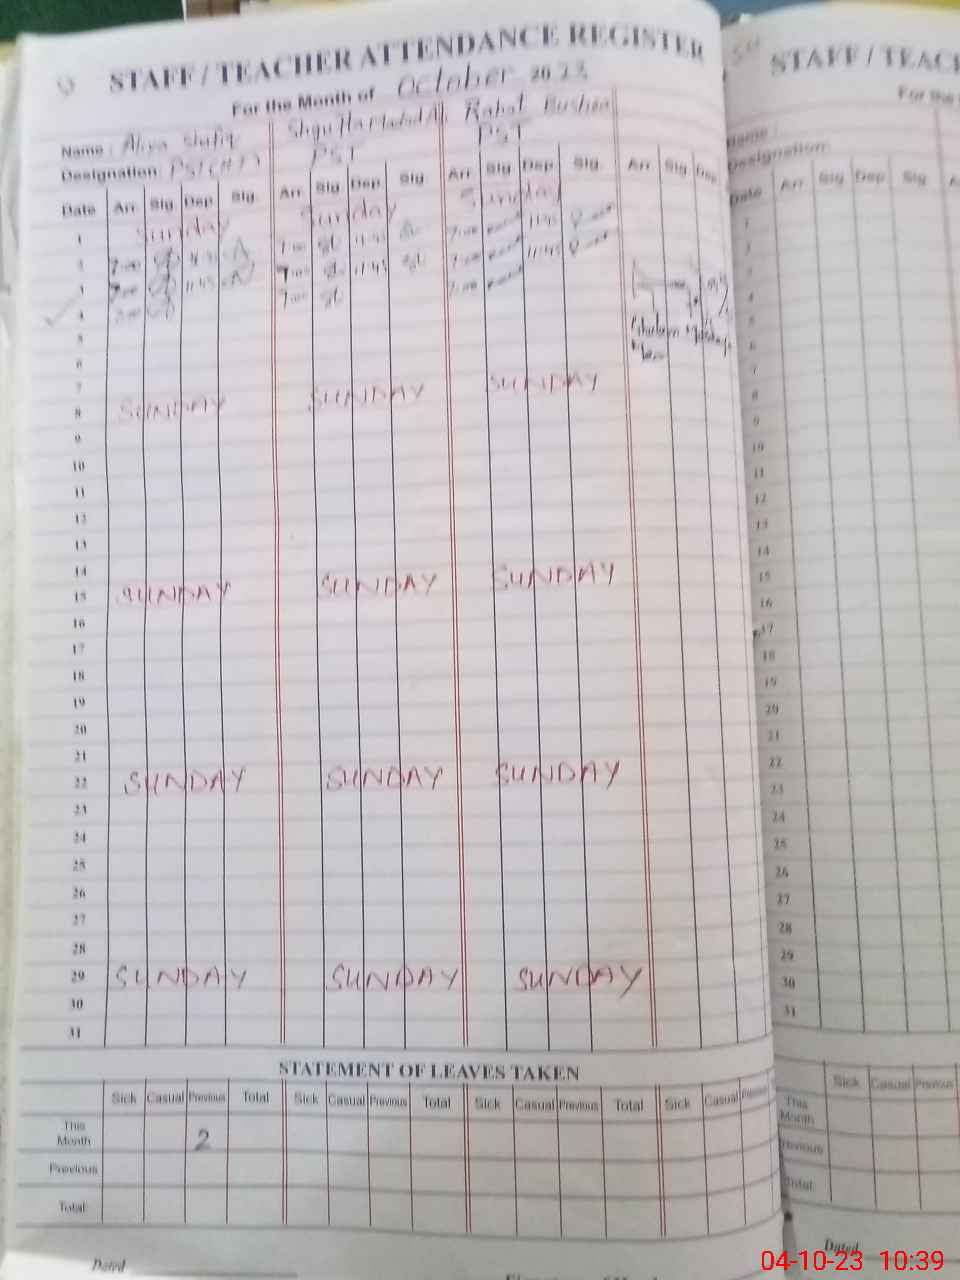 STAFF / TEACHER ATTENDANCE REGISTER
For the Month of October 2023
Name: Aliya Shafiq Rahat Bushra
Designation: PST PST PST
Date Arr Sig Dep Sig Arr Sig Dep Sig Arr Sig Dep Sig Arr Sig Dep
1 Sunday Sunday Sunday
2 7:00 11:45 7:00 11:45 7:00 11:45
3 7:00 11:45 7:00 11:45 7:00 11:45
4 7:00 7:00 7:00
5
6
7
8 SUNDAY SUNDAY SUNDAY
9
10
11
12
13
14
15 SUNDAY SUNDAY SUNDAY
16
17
18
19
20
21
22 SUNDAY SUNDAY SUNDAY
23
24
25
26
27
28
29 SUNDAY SUNDAY SUNDAY
30
31
STATEMENT OF LEAVES TAKEN
Sick Casual Previous Total Sick Casual Previous Total Sick Casual Previous Total Sick Casual Previous
This Month 2
Previous
Total
Dated
STAFF / TEAC
For the
Name:
Designation:
Date Arr Sig Dep Sig
1
2
3
4
5
6
7
8
9
10
11
12
13
14
15
16
17
18
19
20
21
22
23
24
25
26
27
28
29
30
31
Sick Casual Previous
This Month
Previous
Total
Dated
04-10-23 10:39